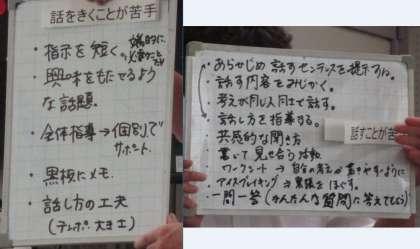 話をきくことが苦手
・指示を短く。端的に、
必要なことだけ
・興味をもたせるよう
な話題。
・全体指導→個別で
サポート。
・黒板にメモ。
・話し方の工夫
(テンポ. 大きさ)
・あらかじめ 話すセンテンスを提示する。
・話す内容をみじかく。
・考えが同じ人同士で話す。
・話し方を指導する。
・共感的な聞き方
・書いて見せ合う活動
ワークシート → 自分の考えが書きやすいように
・アイスブレイキング → 緊張をほぐす。
・一問一答(かんたんな質問に答えてもらう)
話すことが苦